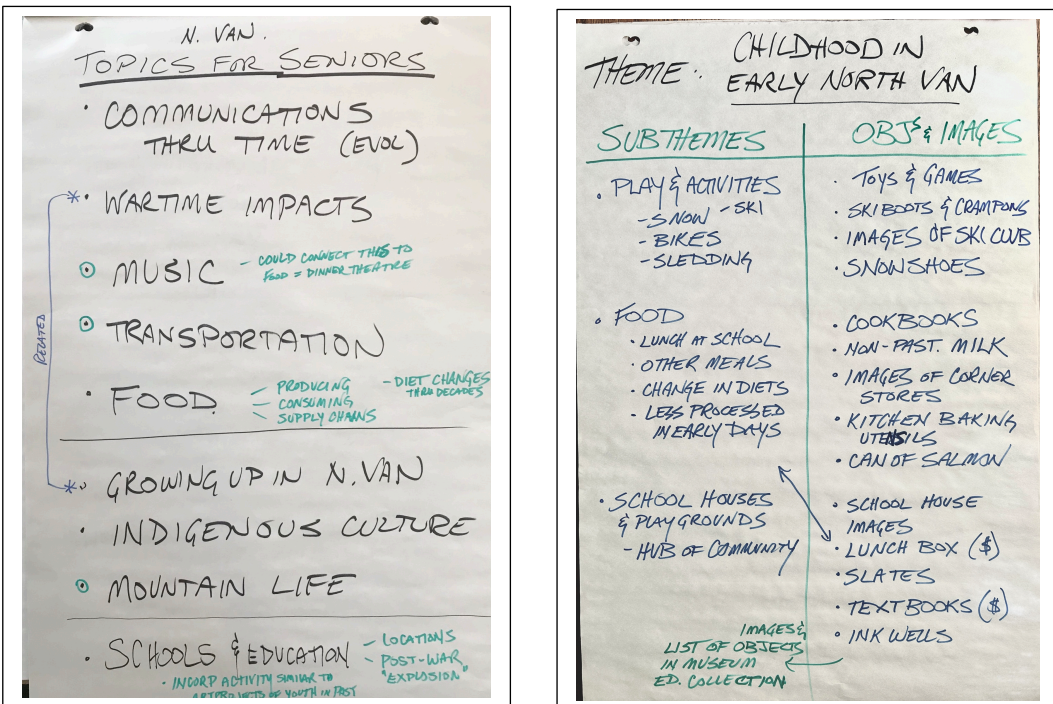 N. VAN.
TOPICS FOR SENIORS
• COMMUNICATIONS
THRU TIME (EVOL)
* • WARTIME IMPACTS
• MUSIC
- COULD CONNECT THIS TO
FOOD = DINNER THEATRE
• TRANSPORTATION
RELATED
• FOOD
- PRODUCING
- CONSUMING
- SUPPLY CHAINS
- DIET CHANGES
THRU DECADES
* • GROWING UP IN N. VAN
• INDIGENOUS CULTURE
• MOUNTAIN LIFE
• SCHOOLS & EDUCATION
- LOCATIONS
- POST-WAR
"EXPLOSION"
• INCORP ACTIVITY SIMILAR TO
ARTPROJECTS OF YOUTH IN PAST
THEME: CHILDHOOD IN
EARLY NORTH VAN
SUBTHEMES
• PLAY & ACTIVITIES
- SNOW - SKI
- BIKES
- SLEDDING
• FOOD
• LUNCH AT SCHOOL
• OTHER MEALS
• CHANGE IN DIETS
• LESS PROCESSED
IN EARLY DAYS
• SCHOOL HOUSES
& PLAYGROUNDS
- HUB OF COMMUNITY
OBJS & IMAGES
• TOYS & GAMES
• SKI BOOTS & CRAMPONS
• IMAGES OF SKI CLUB
• SNOWSHOES
• COOKBOOKS
• NON-PAST. MILK
• IMAGES OF CORNER
STORES
• KITCHEN BAKING
UTENSILS
• CAN OF SALMON
• SCHOOL HOUSE
IMAGES
• LUNCH BOX ($)
• SLATES
• TEXTBOOKS ($)
• INK WELLS
IMAGES &
LIST OF OBJECTS
IN MUSEUM
ED. COLLECTION